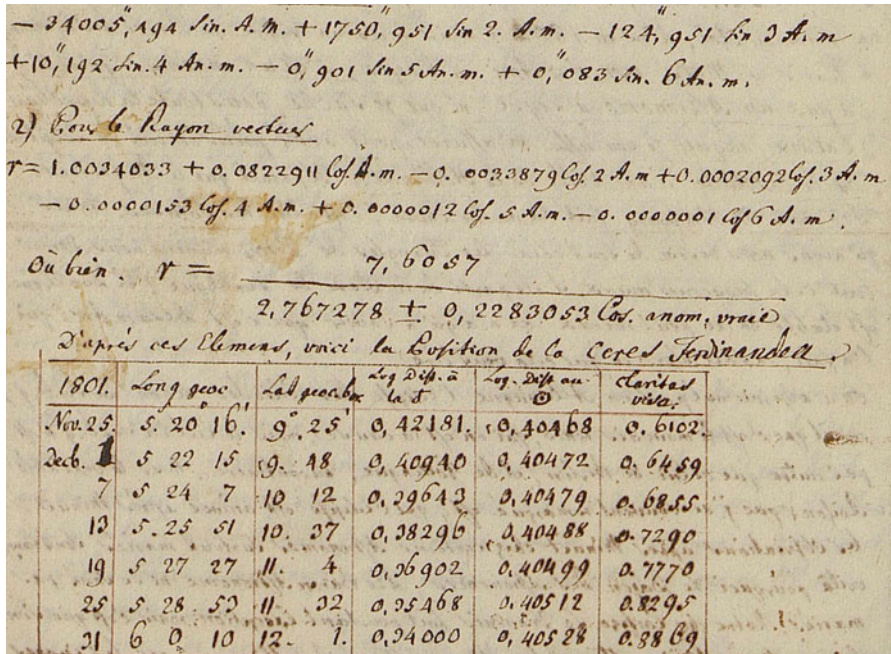 — 34005",494 Sin. A. m. + 1750",951 Sin 2. A. m. — 124",951 Sin 3 A. m
+10",192 Sin. 4 An. m. — 0",901 Sin 5 An. m. + 0",083 Sin. 6 An. m.
2) Pour le Rayon vecteur
r = 1.0034033 + 0.0822911 Cos. A. m. — 0.0033879 Cos. 2 A. m + 0.0002092 Cos. 3 A. m
— 0.0000153 Cos. 4 A. m. + 0.0000012 Cos. 5 A. m. — 0.0000001 Cos 6 A. m.
Où bien. r = 7,6057
2,767278 ± 0,2283053 Cos. anom. vraie
D'après ces Elemens, voici la Position de la Ceres Ferdinandea.
1801. Long geoc Lat geoc. bor Log Dist. à la ♁ Log. Dist au ☉ claritas visa.
Nov. 25. 5. 20° 16' 9° 25' 0,42181. 0,40468 0.6102.
Decb. 1 5 22 15 9. 48 0,40940 0,40472 0.6459
7 5 24 7 10 12 0,39643 0,40479 0.6855
13 5. 25 51 10. 37 0,38296 0,40488 0.7290
19 5 27 27 11. 4 0,36902 0,40499 0.7770
25 5 28. 53 11 32 0,35468 0.40512 0.8295
31 6 0 10 12. 1. 0,34000 0,40528 0.8869